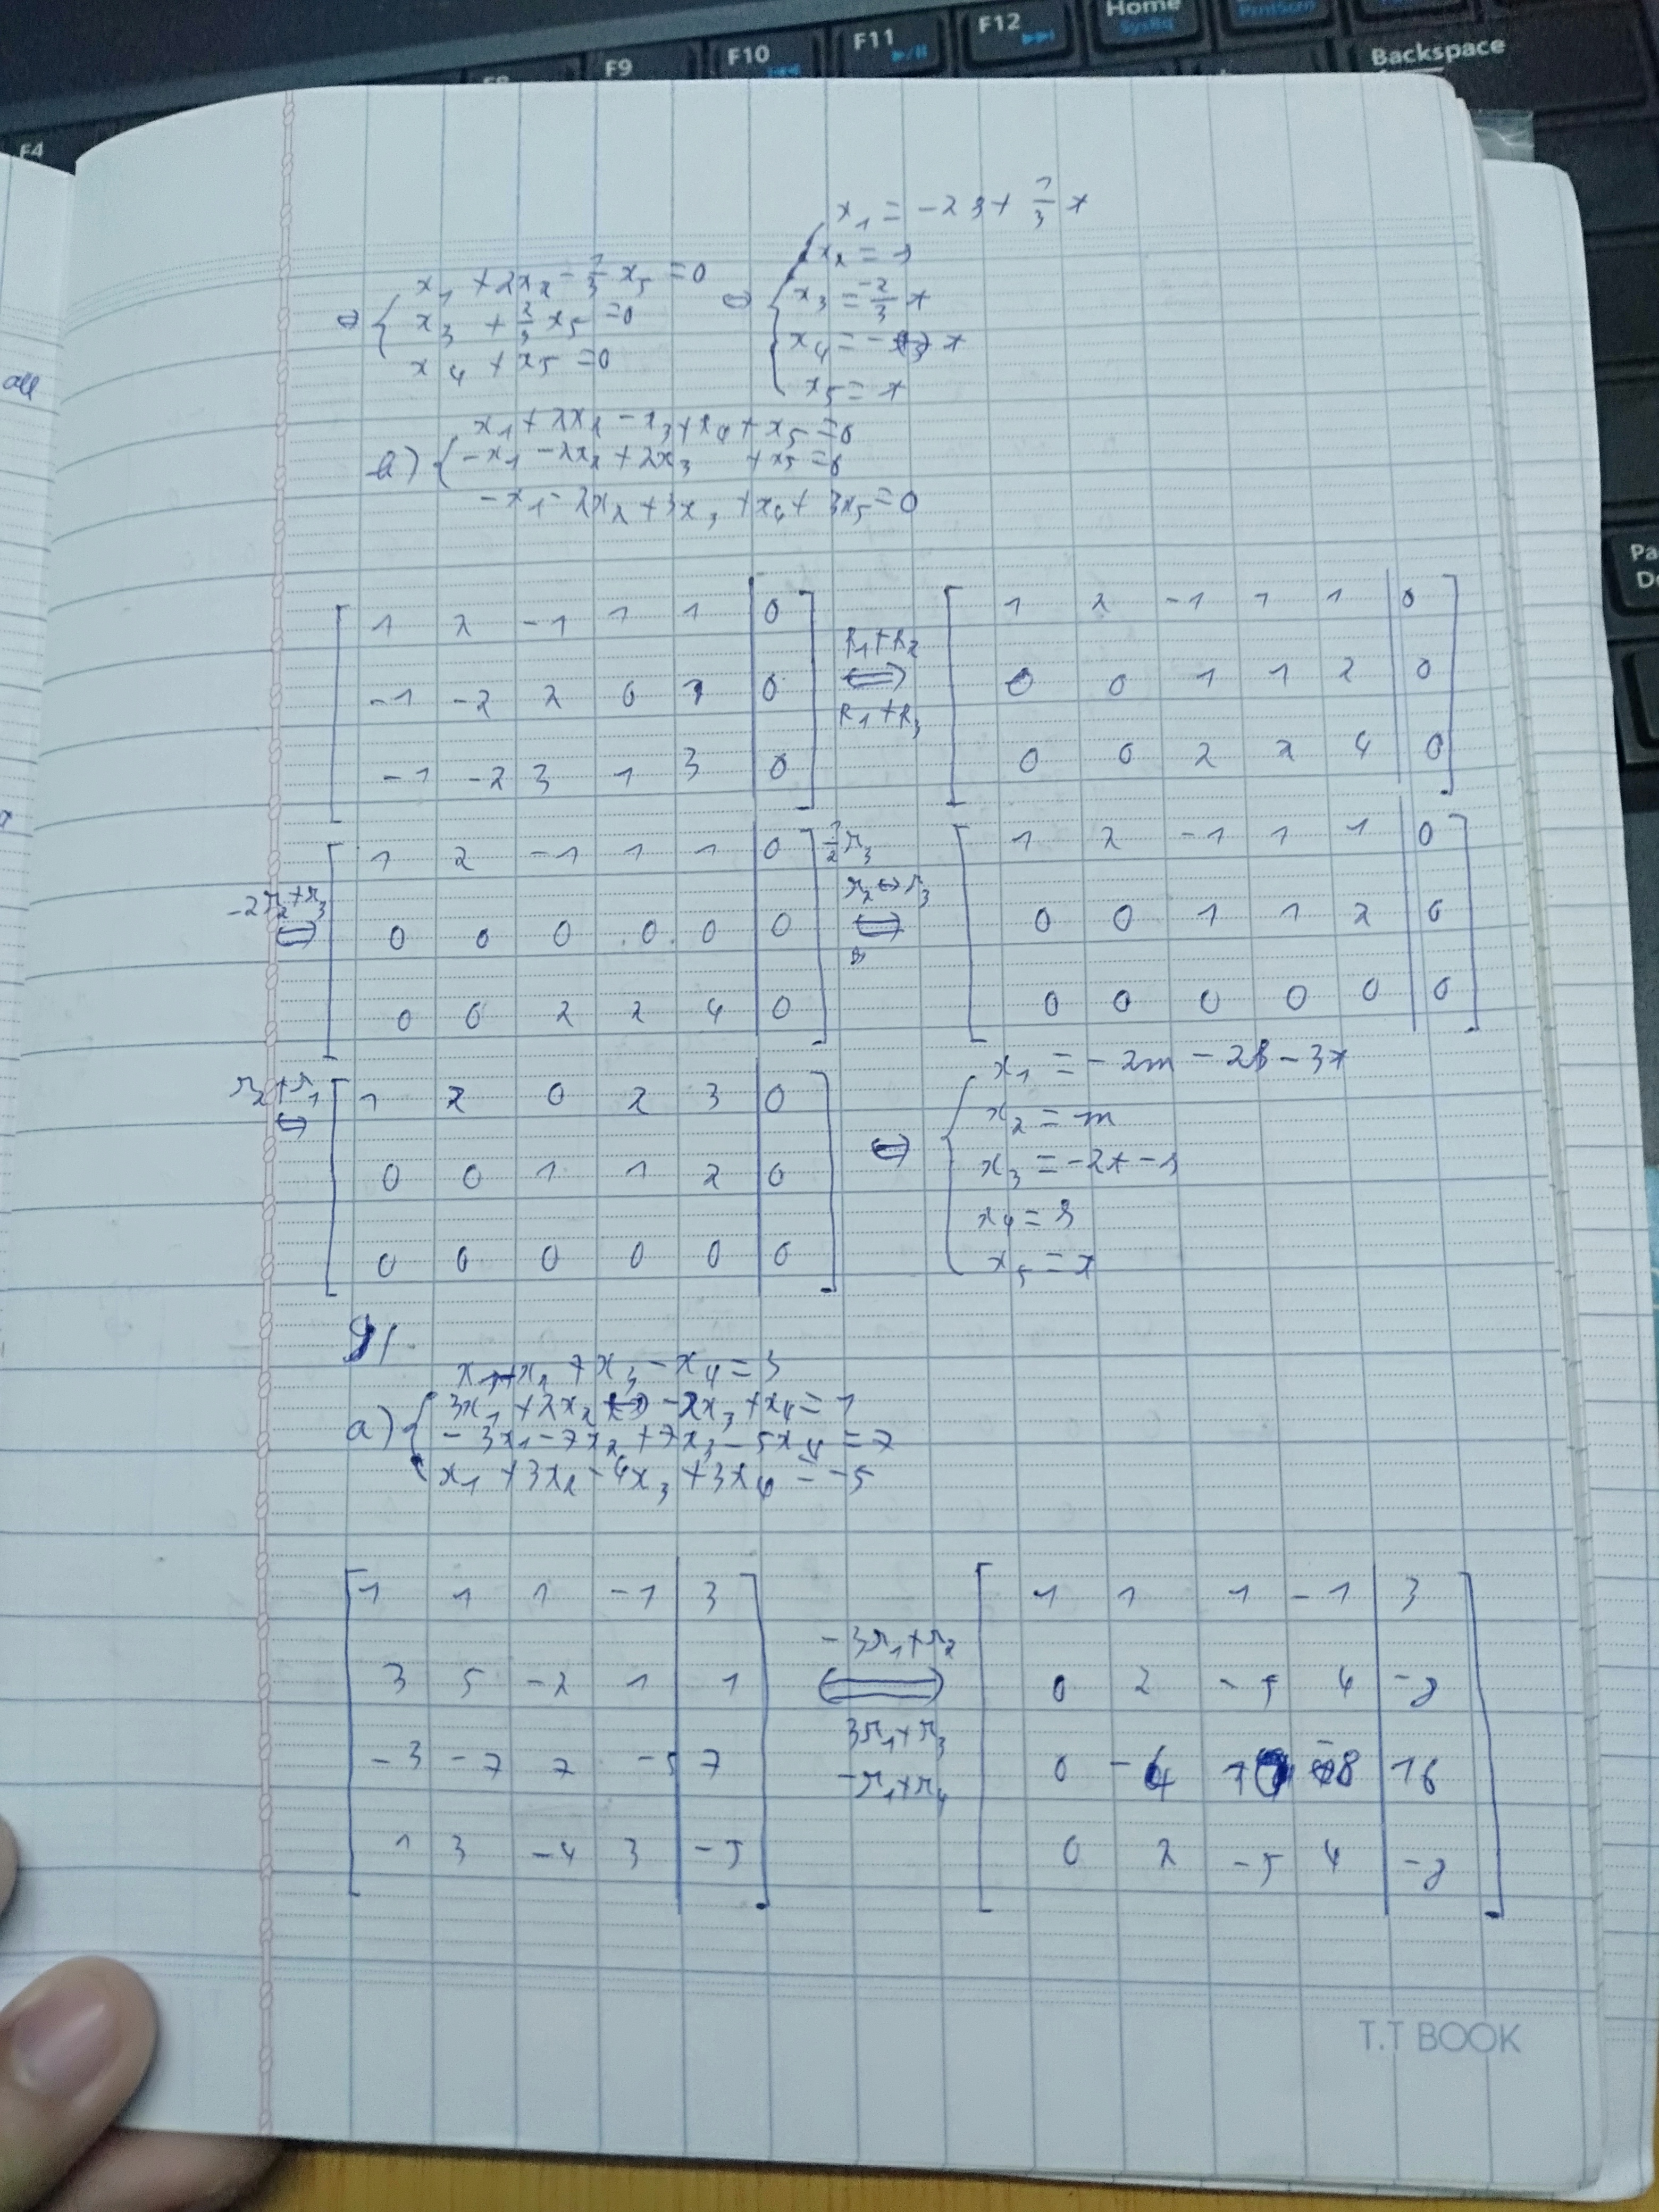 F4
F9
F10
F11
F12
Home
SysRq
PrntScn
Backspace
Pa
De
all
x₁ = -2s + 1/3 t
x₂ = s
x₃ = -2/3 t
x₄ = - t
x₅ = t
⇔ { x₁ + 2x₂ - 1/3 x₅ = 0 ⇔
x₃ + 2/3 x₅ = 0
x₄ + x₅ = 0
x₁ + 2x₂ - x₃ + x₄ + x₅ = 0
b) { -x₁ - 2x₂ + 2x₃ + x₅ = 0
-x₁ - 2x₂ + 3x₃ + x₄ + 3x₅ = 0
1 2 -1 1 1 | 0
-1 -2 2 0 1 | 0
-1 -2 3 1 3 | 0
R₁+R₂
⇔
R₁+R₃
1 2 -1 1 1 | 0
0 0 1 1 2 | 0
0 0 2 2 4 | 0
-2r₂+r₃
⇔
1 2 -1 1 1 | 0
0 0 0 0 0 | 0
0 0 2 2 4 | 0
1/2 r₃
r₂⇔r₃
⇔
1 2 -1 1 1 | 0
0 0 1 1 2 | 0
0 0 0 0 0 | 0
r₂+r₁
⇔
1 2 0 2 3 | 0
0 0 1 1 2 | 0
0 0 0 0 0 | 0
⇔
x₁ = -2m - 2s - 3t
x₂ = m
x₃ = -2t - s
x₄ = s
x₅ = t
9/
+ x₃ - x₄ = 3
a) { 3x₁ + 2x₂ - 2x₃ + x₄ = 1
-3x₁ - 7x₂ + 7x₃ - 5x₄ = 7
x₁ + 3x₂ - 4x₃ + 3x₄ = -5
1 1 1 -1 | 3
3 5 -2 1 | 1
-3 -7 7 -5 | 7
1 3 -4 3 | -5
-3r₁+r₂
⇔
3r₁+r₃
-r₁+r₄
1 1 1 -1 | 3
0 2 -5 4 | -8
0 -4 -8 | 16
0 2 -5 4 | -8
T.T BOOK